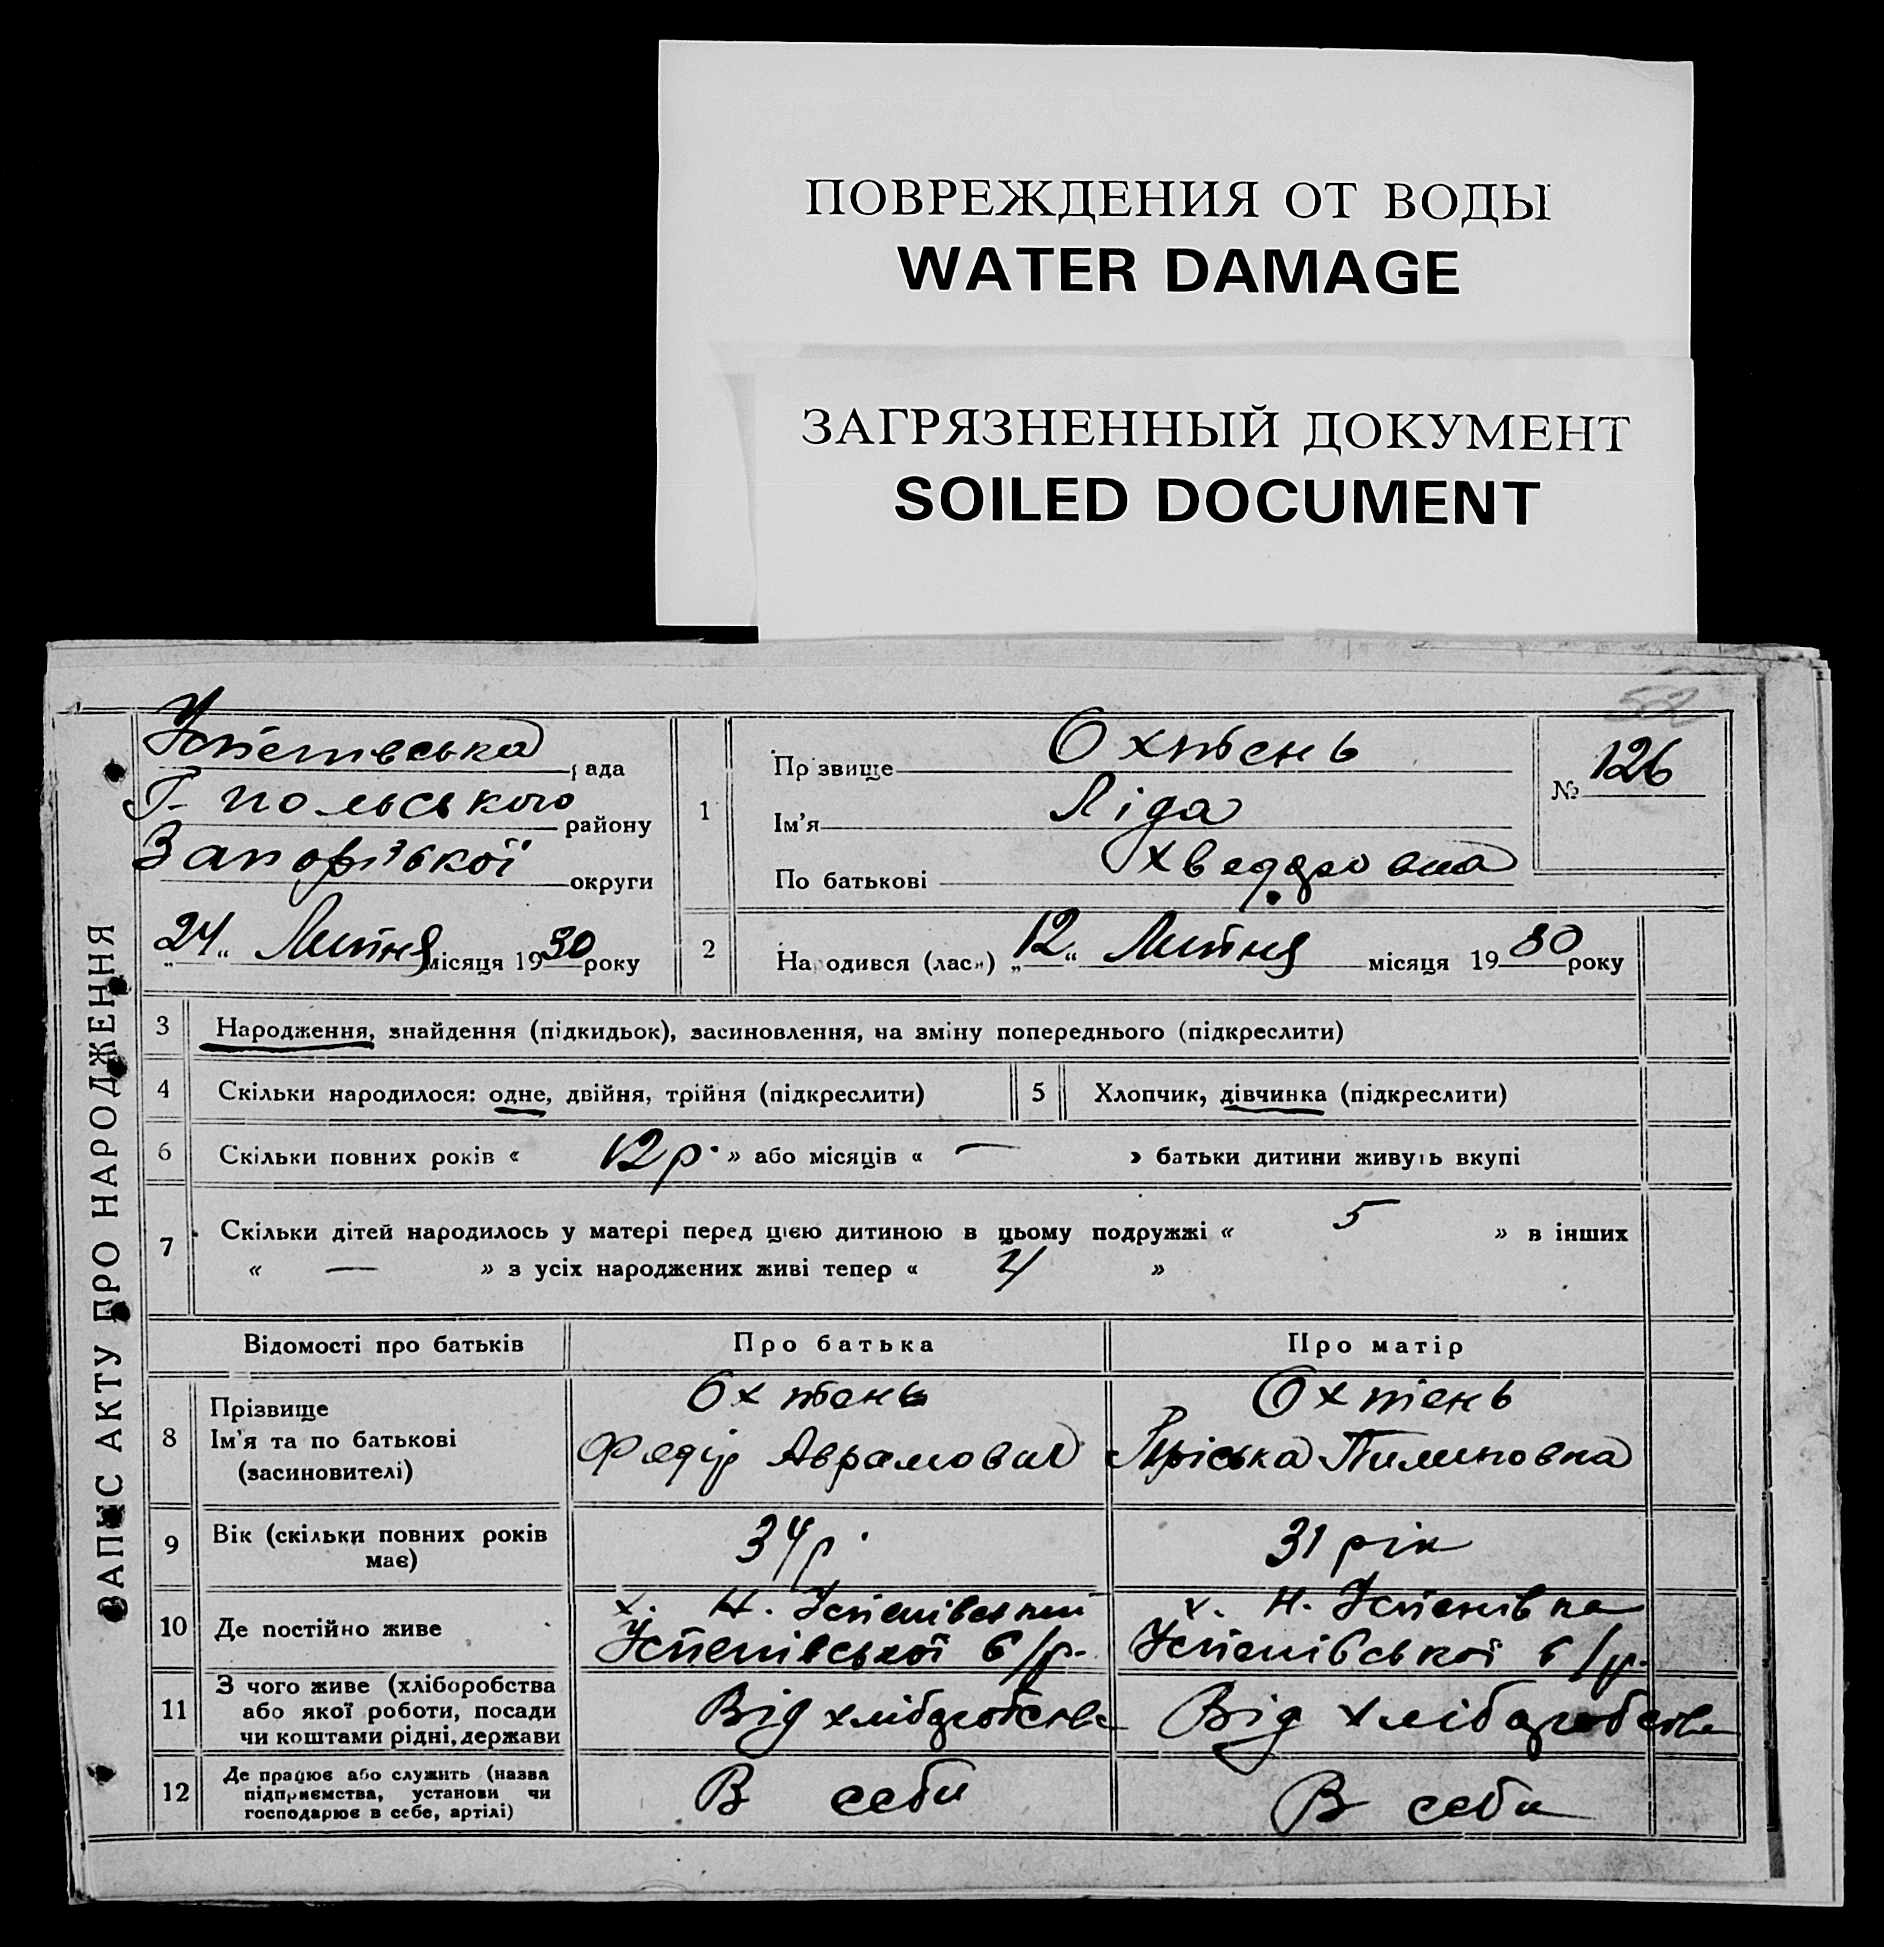 ПОВРЕЖДЕНИЯ ОТ ВОДЫ
WATER DAMAGE
ЗАГРЯЗНЕННЫЙ ДОКУМЕНТ
SOILED DOCUMENT
52
ЗАПИС АКТУ ПРО НАРОДЖЕННЯ
Успенівська рада
Г-польського району
Запорізької округи
„24“ Лютня місяця 1930 року
1
Прізвище Охтень
Ім'я Ліда
По батькові Хведоровна
№ 126
2 Народився (лась) „12“ Лютня місяця 1930 року
3 Народження, знайдення (підкидьок), засиновлення, на зміну попереднього (підкреслити)
4 Скільки народилося: одне, двійня, трійня (підкреслити) 5 Хлопчик, дівчинка (підкреслити)
6 Скільки повних років « 12 р. » або місяців « — » батьки дитини живуть вкупі
7 Скільки дітей народилось у матері перед цією дитиною в цьому подружжі « 5 » в інших
« — » з усіх народжених живі тепер « 4 »
Відомості про батьків Про батька Про матір
8 Прізвище
Ім'я та по батькові
(засиновителі)
Охтень
Федір Аврамович
Охтень
Пилиповна
9 Вік (скільки повних років
має)
34 р.
31 рік
10 Де постійно живе
х. Н. Успенівский
Успенівської с/р.
х. Н. Успенівка
Успенівської с/р.
11 З чого живе (хліборобства
або якої роботи, посади
чи коштами рідні, держави
Від хліборобства
Від хліборобства
12 Де працює або служить (назва
підприємства, установи чи
господарює в себе, артілі)
В себи
В себи